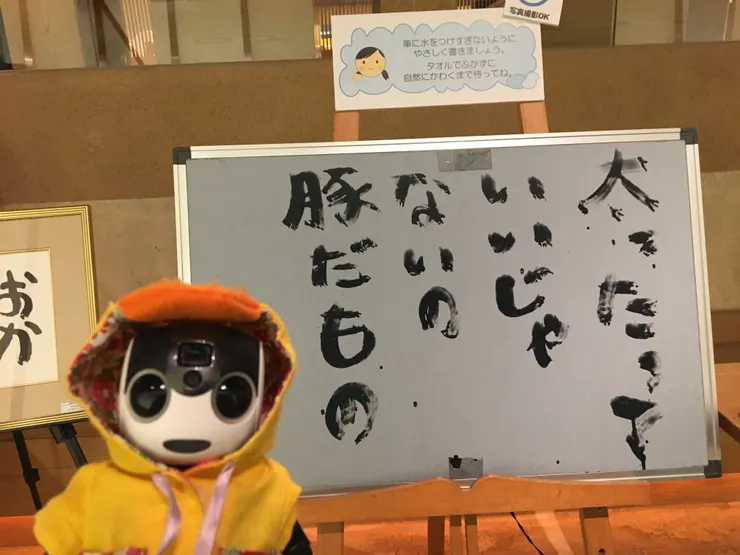 写真撮影OK
筆に水をつけすぎないように
やさしく書きましょう。
タオルでふかずに
自然にかわくまで待ってね。
太ったって
いいじゃ
ないの
豚だもの
おか